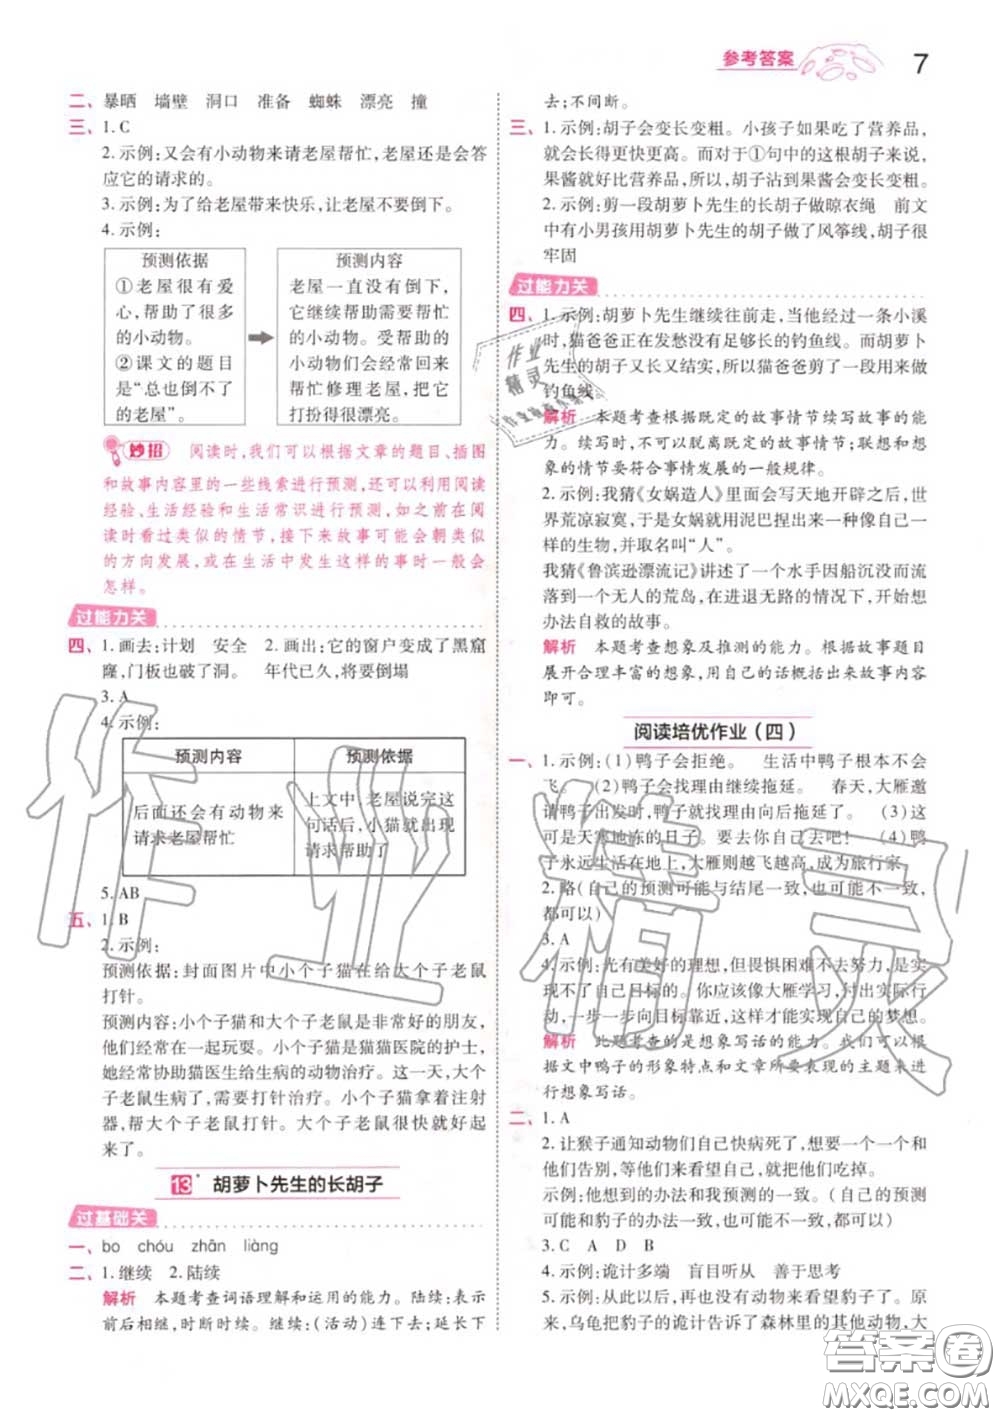 参考答案
7
二、暴晒 墙壁 洞口 准备 蜘蛛 漂亮 撞
三、1. C
2. 示例:又会有小动物来请老屋帮忙,老屋还是会答
应它的请求的。
3. 示例:为了给老屋带来快乐,让老屋不要倒下。
4. 示例:
预测依据
①老屋很有爱
心,帮助了很多
的小动物。
②课文的题目
是“总也倒不了
的老屋”。
预测内容
老屋一直没有倒下,
它继续帮助需要帮忙
的小动物。受帮助的
小动物们会经常回来
帮忙修理老屋,把它
打扮得很漂亮。
妙招 阅读时,我们可以根据文章的题目、插图
和故事内容里的一些线索进行预测,还可以利用阅读
经验、生活经验和生活常识进行预测,如之前在阅
读时看过类似的情节,接下来故事可能会朝类似
的方向发展,或在生活中发生这样的事时一般会
怎样。
过能力关
四、1. 画去:计划 安全 2. 画出:它的窗户变成了黑窟
窿,门板也破了洞。 年代已久,将要倒塌
3. A
4. 示例:
预测内容 预测依据
后面还会有动物来
请求老屋帮忙
上文中,老屋说完这
句话后,小猫就出现
请求帮助了
5. AB
五、1. B
2. 示例:
预测依据:封面图片中小个子猫在给大个子老鼠
打针。
预测内容:小个子猫和大个子老鼠是非常好的朋友,
他们经常在一起玩耍。小个子猫是猫猫医院的护士,
她经常协助猫医生给生病的动物治疗。这一天,大个
子老鼠生病了,需要打针治疗。小个子猫拿着注射
器,帮大个子老鼠打针。大个子老鼠很快就好起
来了。
13* 胡萝卜先生的长胡子
过基础关
一、bo chóu zhān liàng
二、1. 继续 2. 陆续
解析 本题考查词语理解和运用的能力。陆续:表示
前后相继,时断时续。继续:(活动)连下去;延长下
去;不间断。
三、1. 示例:胡子会变长变粗。小孩子如果吃了营养品,
就会长得更快更高。而对于①句中的这根胡子来说,
果酱就好比营养品,所以,胡子沾到果酱会变长变粗。
2. 示例:剪一段胡萝卜先生的长胡子做晾衣绳 前文
中有小男孩用胡萝卜先生的胡子做了风筝线,胡子很
牢固
过能力关
四、1. 示例:胡萝卜先生继续往前走,当他经过一条小溪
时,猫爸爸正在发愁没有足够长的钓鱼线。而胡萝卜
先生的胡子又长又结实,所以猫爸爸剪了一段用来做
钓鱼线。
解析 本题考查根据既定的故事情节续写故事的能
力。续写时,不可以脱离既定的故事情节;联想和想
象的情节要符合事情发展的一般规律。
2. 示例:我猜《女娲造人》里面会写天地开辟之后,世
界荒凉寂寞,于是女娲就用泥巴捏出来一种像自己一
样的生物,并取名叫“人”。
我猜《鲁滨逊漂流记》讲述了一个水手因船沉没而流
落到一个无人的荒岛,在进退无路的情况下,开始想
办法自救的故事。
解析 本题考查想象及推测的能力。根据故事题目
展开合理丰富的想象,用自己的话概括出来故事内容
即可。
阅读培优作业(四)
一、1. 示例:(1)鸭子会拒绝。 生活中鸭子根本不会
飞。 (2)鸭子会找理由继续拖延。 春天,大雁邀
请鸭子出发时,鸭子就找理由向后拖延了。 (3)这
可是天寒地冻的日子。要去你自己去吧! (4)鸭
子永远生活在地上,大雁则越飞越高,成为旅行家。
2. 略(自己的预测可能与结尾一致,也可能不一致,
都可以)
3. A
4. 示例:光有美好的理想,但畏惧困难不去努力,是实
现不了自己目标的。你应该像大雁学习,付出实际行
动,一步一步向目标靠近,这样才能实现自己的梦想。
解析 此题考查的是想象写话的能力。我们可以根
据文中鸭子的形象特点和文章所要表达的主题来进
行想象写话。
二、1. A
2. 让猴子通知动物们自己快病死了,想要一个一个和
他们告别,等他们来看望自己,就把他们吃掉。
示例:他想到的办法和我预测的一致。(自己的预测
可能和豹子的办法一致,也可能不一致,都可以)
3. C A D B
4. 示例:诡计多端 盲目听从 善于思考
5. 示例:从此以后,再也没有动物来看望豹子了。原
来,乌龟把豹子的诡计告诉了森林里的其他动物,大
作业
精灵
作业精灵
答案圈
MXQE.COM